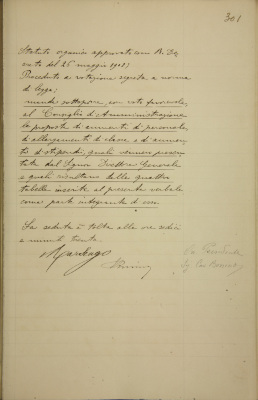 301
Statuto organico approvato con R. De,
creto del 26 maggio 1912)
Procedutosi a votazione segreta a norma
di legge;
manda sottoporre, con voto favorevole,
al Consiglio d'Amministrazione
le proposte di aumenti di personale,
d'allargamenti di classe, e di aumento
di stipendi, quali vennero presen-
tate dal Signor Direttore Generale
e quali risultano dalle quattro
tabelle inserite al presente verbale
come parte integrante di esso.
La seduta è tolta alle ore sedici
e minuti trenta.